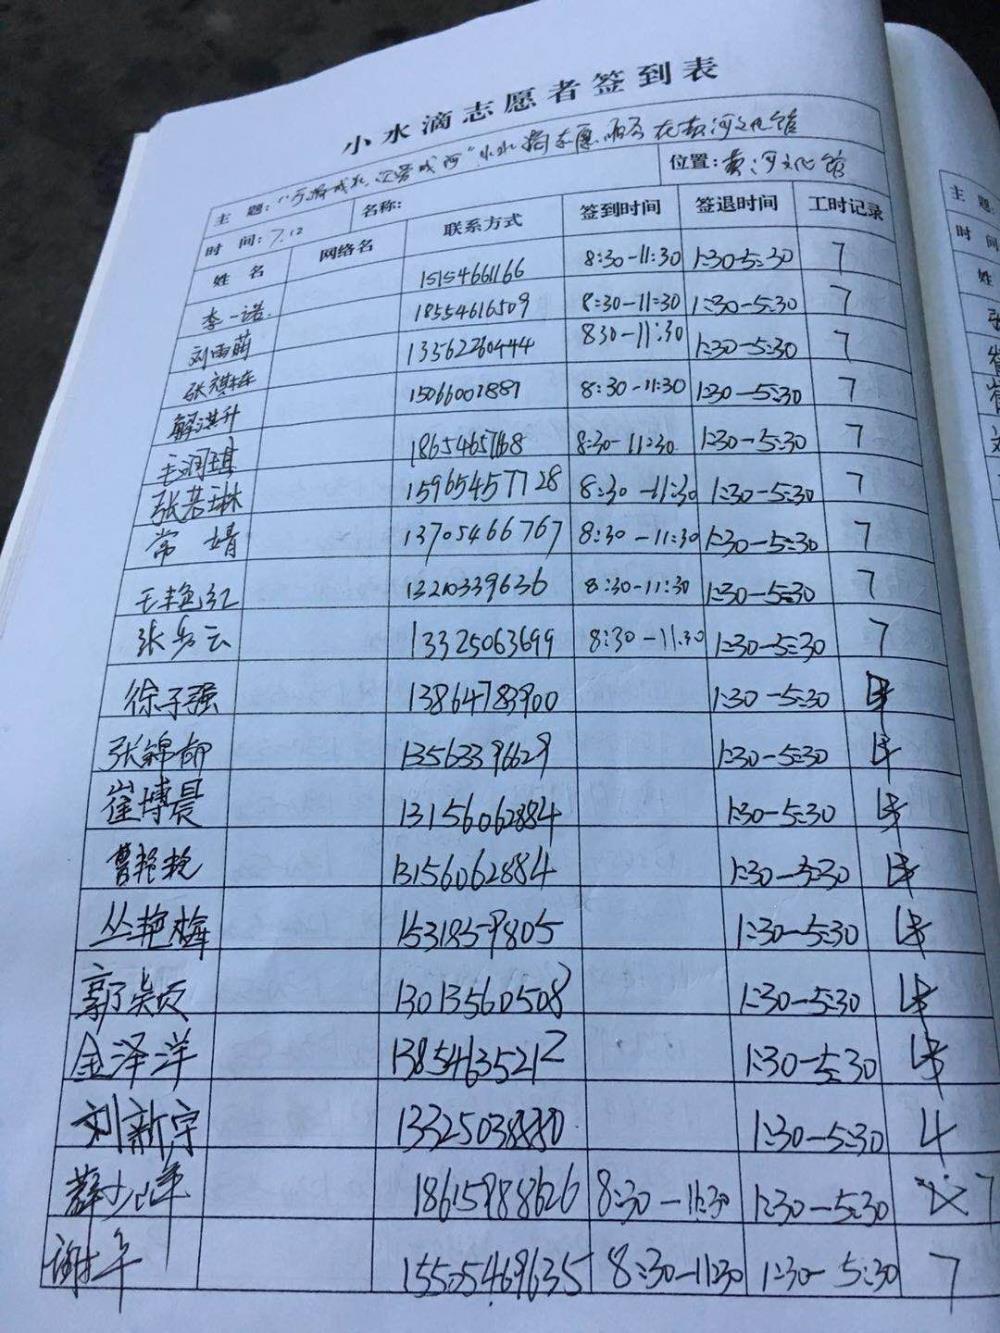 小水滴志愿者签到表
主 题: 小水滴志愿 在黄河文化馆
时 间: 7.12 名称: 位置: 黄河文化馆
姓 名 网络名 联系方式 签到时间 签退时间 工时记录
李一诺 15154661166 8:30-11:30 1:30-5:30 7
刘雨萌 18554616509 8:30-11:30 1:30-5:30 7
张祺栋 13562260444 830-11:30 1:30-5:30 7
解淇升 15066001887 8:30-11:30 1:30-5:30 7
毛润琪 18654657168 8:30-11:30 1:30-5:30 7
张若琳 15965457728 8:30-11:30 1:30-5:30 7
常婧 13705466767 8:30-11:30 1:30-5:30 7
王艳红 13210339636 8:30-11:30 1:30-5:30 7
张秀云 13325063699 8:30-11:30 1:30-5:30 7
徐子强 13864783900 1:30-5:30 4
张锦郁 13563396629 1:30-5:30 4
崔博晨 13156062884 1:30-5:30 4
曹艳艳 13156062884 1:30-5:30 4
丛艳梅 15318359805 1:30-5:30 4
郭颖 13013560508 1:30-5:30 4
金泽洋 13854635212 1:30-5:30 4
刘新宇 13325038880 1:30-5:30 4
薛少华 18615988626 8:30-11:30 1:30-5:30 7
谢华 15505469635 8:30-11:30 1:30-5:30 7
主 题:
时 间
姓
张
崔
崔